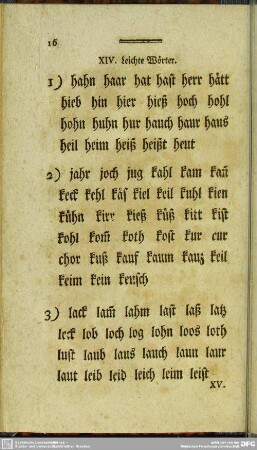 16
XIV. Leichte Wörter.
1) hahn haar hat hast herr hätt
hieb hin hier hieß hoch hohl
hohn huhn hur hauch haur haus
heil heim heiß heißt heut
2) jahr joch jug kahl kam kañ
keck kehl käs kiel keil kuhl kien
kühn kirr kieß küß kitt kist
kohl kom̃ koth kost kur cur
chor kuß kauf kaum kauz keil
keim kein keusch
3) lack lam̃ lahm last laß latz
leck lob loch log lohn loos loth
lust laub laus lauch laun laur
laut leib leid leich leim leist
XV.